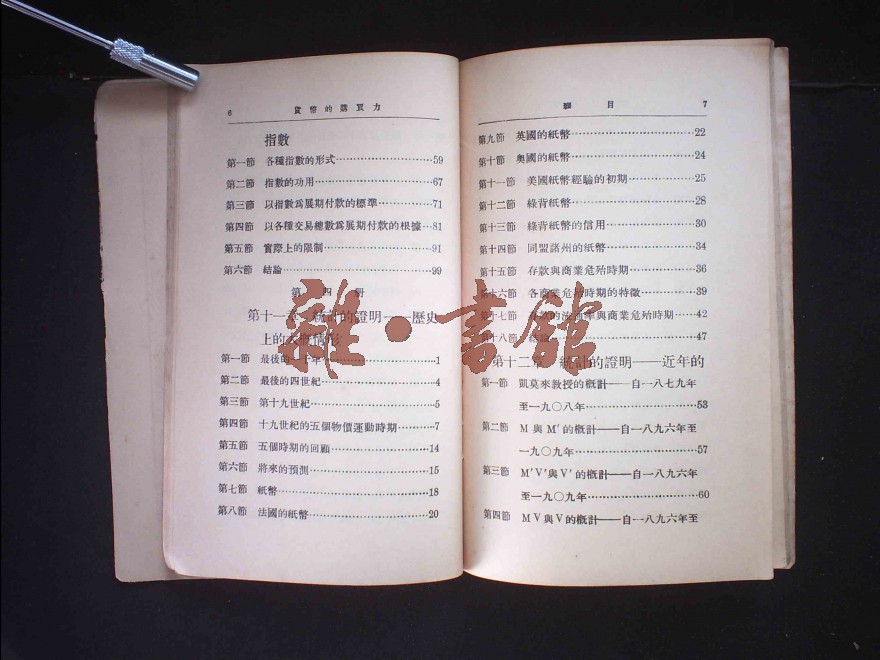 6 貨幣的購買力
指數
第一節 各種指數的形式…………59
第二節 指數的功用…………67
第三節 以指數爲展期付款的標準…………71
第四節 以各種交易總數爲展期付款的根據…81
第五節 實際上的限制…………91
第六節 結論…………99
第四册
第十一章 統計的證明——歷史
上的大概情形
第一節 最後的一千年…………1
第二節 最後的四世紀…………4
第三節 第十九世紀…………5
第四節 十九世紀的五個物價運動時期…………7
第五節 五個時期的回顧…………14
第六節 將來的預測…………15
第七節 紙幣…………18
第八節 法國的紙幣…………20
目 7
第九節 英國的紙幣…………22
第十節 奧國的紙幣…………24
第十一節 美國紙幣經驗的初期…………25
第十二節 綠背紙幣…………28
第十三節 綠背紙幣的信用…………30
第十四節 同盟諸州的紙幣…………34
第十五節 存款與商業危殆時期…………36
第十六節 各商業危殆時期的特徵…………39
第十七節 存款的流通率與商業危殆時期…42
第十八節 結論…………47
第十二章 統計的證明——近年的
第一節 凱莫來教授的概計——自一八七九年
至一九〇八年…………53
第二節 M與M′的概計——自一八九六年至
一九〇九年…………57
第三節 M′V′與V′的概計——自一八九六年
至一九〇九年…………60
第四節 MV與V的概計——自一八九六年至
雜·書館